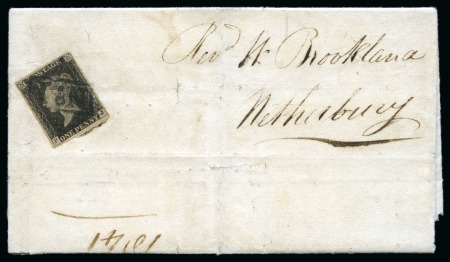 POSTAGE
ONE PENNY
Revd W. Brookland
Netherbury
1841